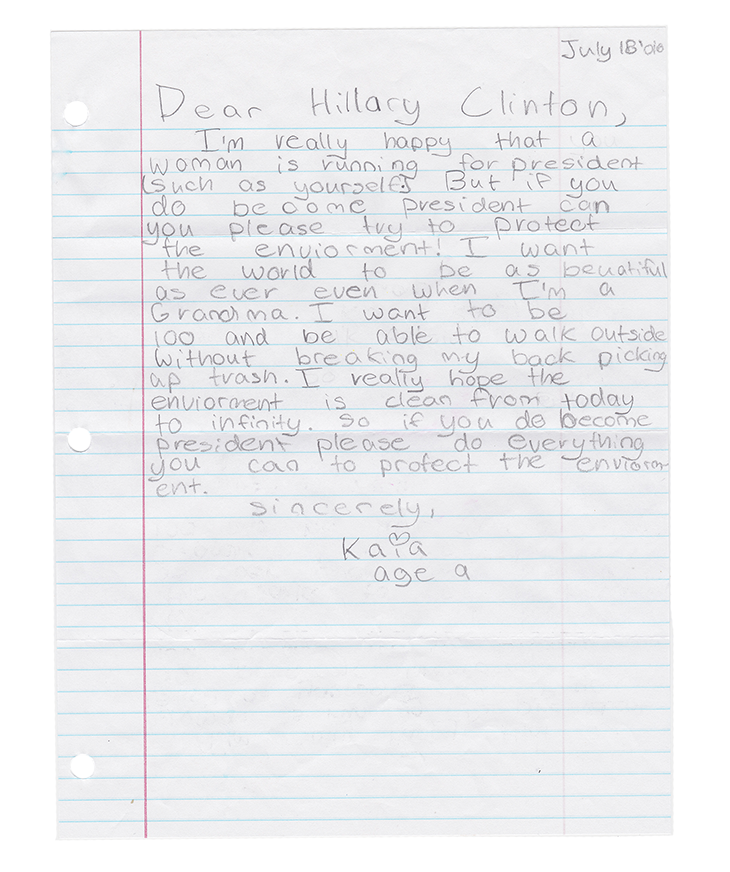 July 18 '016
Dear Hillary Clinton,
I'm really happy that a
woman is running for president
(such as yourself) But if you
do become president can
you please try to protect
the enviorment! I want
the world to be as beuatiful
as ever even when I'm a
Grandma. I want to be
100 and be able to walk outside
without breaking my back picking
up trash. I really hope the
enviorment is clean from today
to infinity. So if you do become
president please do everything
you can to protect the enviorm
ent.
sincerely,
Kaia
age 9